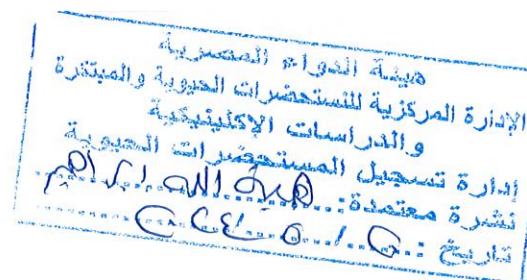 هيئة الدواء المصرية
الإدارة المركزية للمستحضرات الحيوية والمبتكرة
والدراسات الإكلينيكية
إدارة تسجيل المستحضرات الحيوية
نشرة معتمدة: هبة الله ابراهيم
تاريخ :